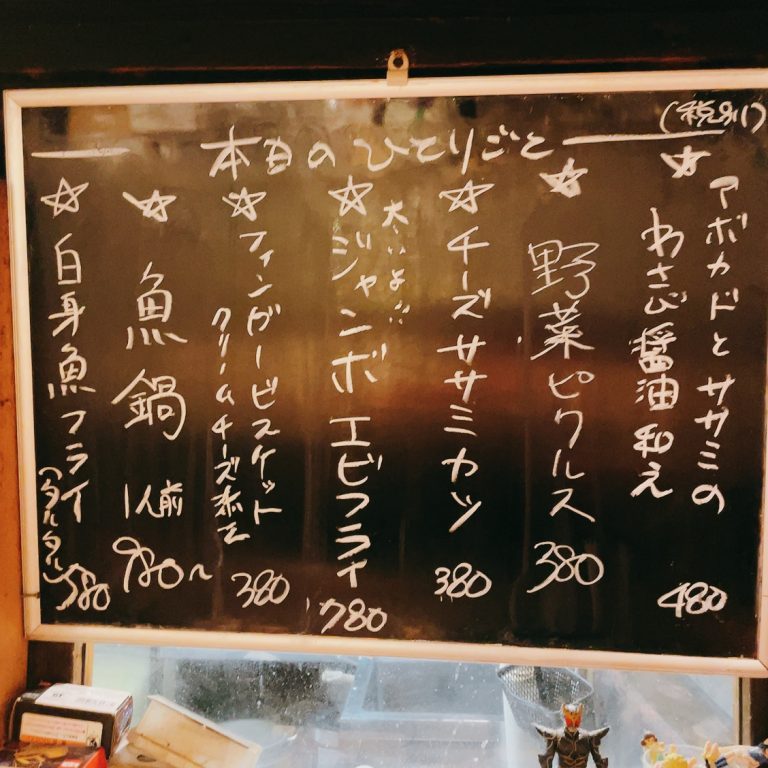 本日のひとりごと
(税別)
☆アボカドとササミの
わさび醤油和え
480
☆野菜ピクルス
380
☆チーズササミカツ
380
大っいよ!!
☆ジャンボエビフライ
780
☆フィンガービスケット
クリームチーズ添え
380
☆魚鍋
1人前
980〜
☆白身魚フライ
(タルタル)
580